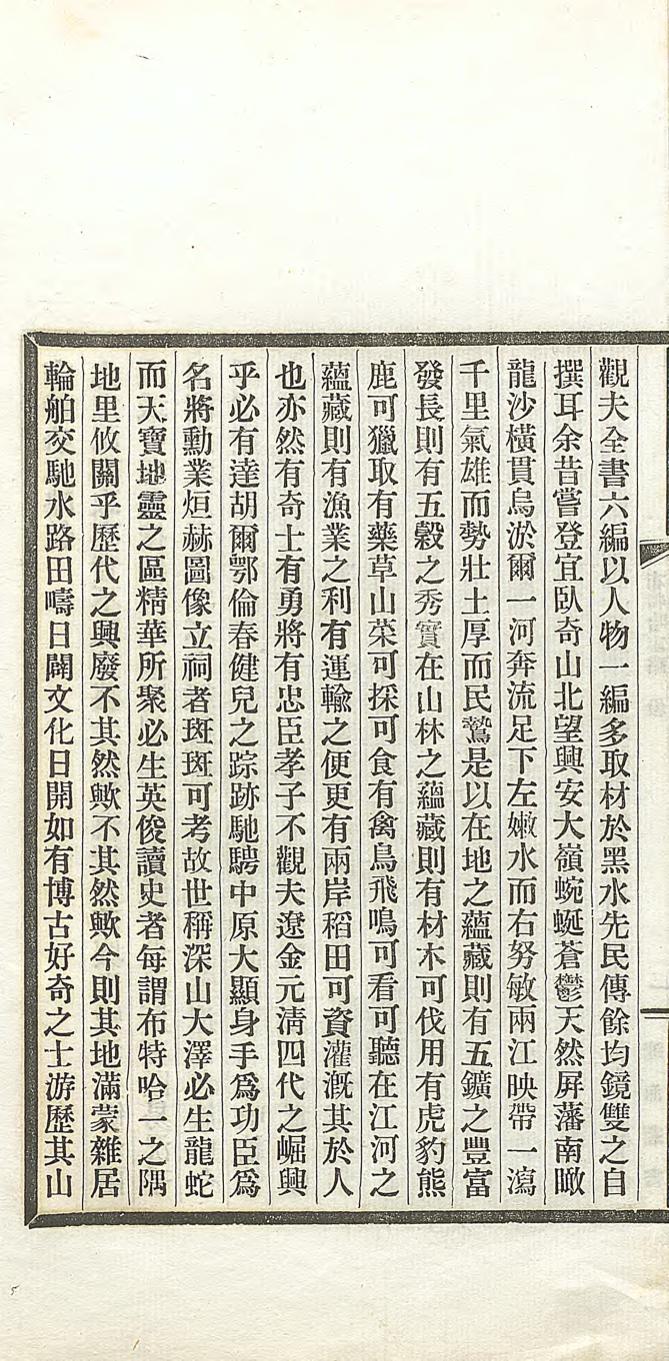 觀夫全書六編以人物一編多取材於黑水先民傳餘均鏡雙之自
撰耳余昔嘗登宜臥奇山北望興安大嶺蜿蜒蒼鬱天然屏藩南瞰
龍沙橫貫烏淤爾一河奔流足下左嫩水而右努敏兩江映帶一瀉
千里氣雄而勢壯土厚而民鷙是以在地之蘊藏則有五鑛之豐富
發長則有五穀之秀實在山林之蘊藏則有材木可伐用有虎豹熊
鹿可獵取有藥草山菜可採可食有禽鳥飛鳴可看可聽在江河之
蘊藏則有漁業之利有運輸之便更有兩岸稻田可資灌溉其於人
也亦然有奇士有勇將有忠臣孝子不觀夫遼金元淸四代之崛興
乎必有達胡爾鄂倫春健兒之踪跡馳騁中原大顯身手爲功臣爲
名將勳業烜赫圖像立祠者斑斑可考故世稱深山大澤必生龍蛇
而天寶地靈之區精華所聚必生英俊讀史者每謂布特哈一之隅
地里攸關乎歷代之興廢不其然歟不其然歟今則其地滿蒙雜居
輪舶交馳水路田疇日闢文化日開如有博古好奇之士游歷其山